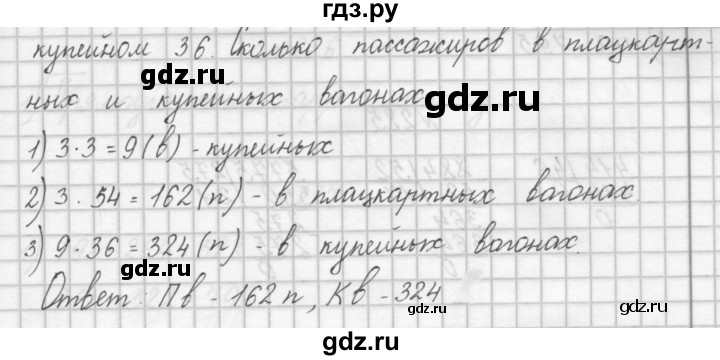 гдз.ру
купейном 36. Сколько пассажиров в плацкарт-
ных и купейных вагонах
gdz.ru
1) 3·3=9(в) - купейных
2) 3·54=162(п) - в плацкартных вагонах.
3) 9·36=324(п) - в купейных вагонах.
gdz.ru
Ответ: Пв - 162 п, Кв - 324
gdz.ru
gdz.ru